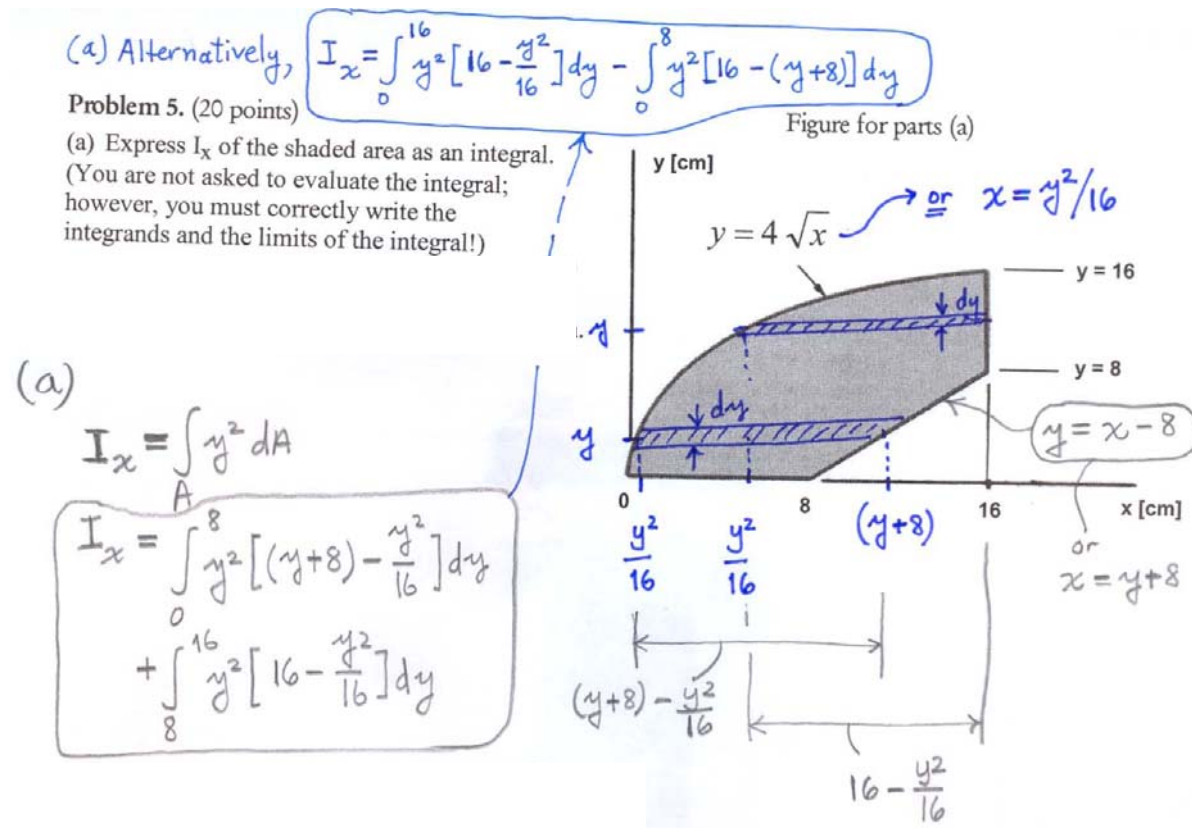 (a) Alternatively, I_x = ∫_0^16 y² [16 - y²/16] dy - ∫_0^8 y² [16 - (y+8)] dy
Problem 5. (20 points)
(a) Express I_X of the shaded area as an integral.
(You are not asked to evaluate the integral;
however, you must correctly write the
integrands and the limits of the integral!)
Figure for parts (a)
y [cm]
y = 4 √x
or x = y²/16
y = 16
dy
y
y = 8
dy
y
y = x - 8
or
x = y+8
0
8
16
x [cm]
y²/16
y²/16
(y+8)
(y+8) - y²/16
16 - y²/16
(a)
I_x = ∫_A y² dA
I_x = ∫_0^8 y² [(y+8) - y²/16] dy
+ ∫_8^16 y² [16 - y²/16] dy